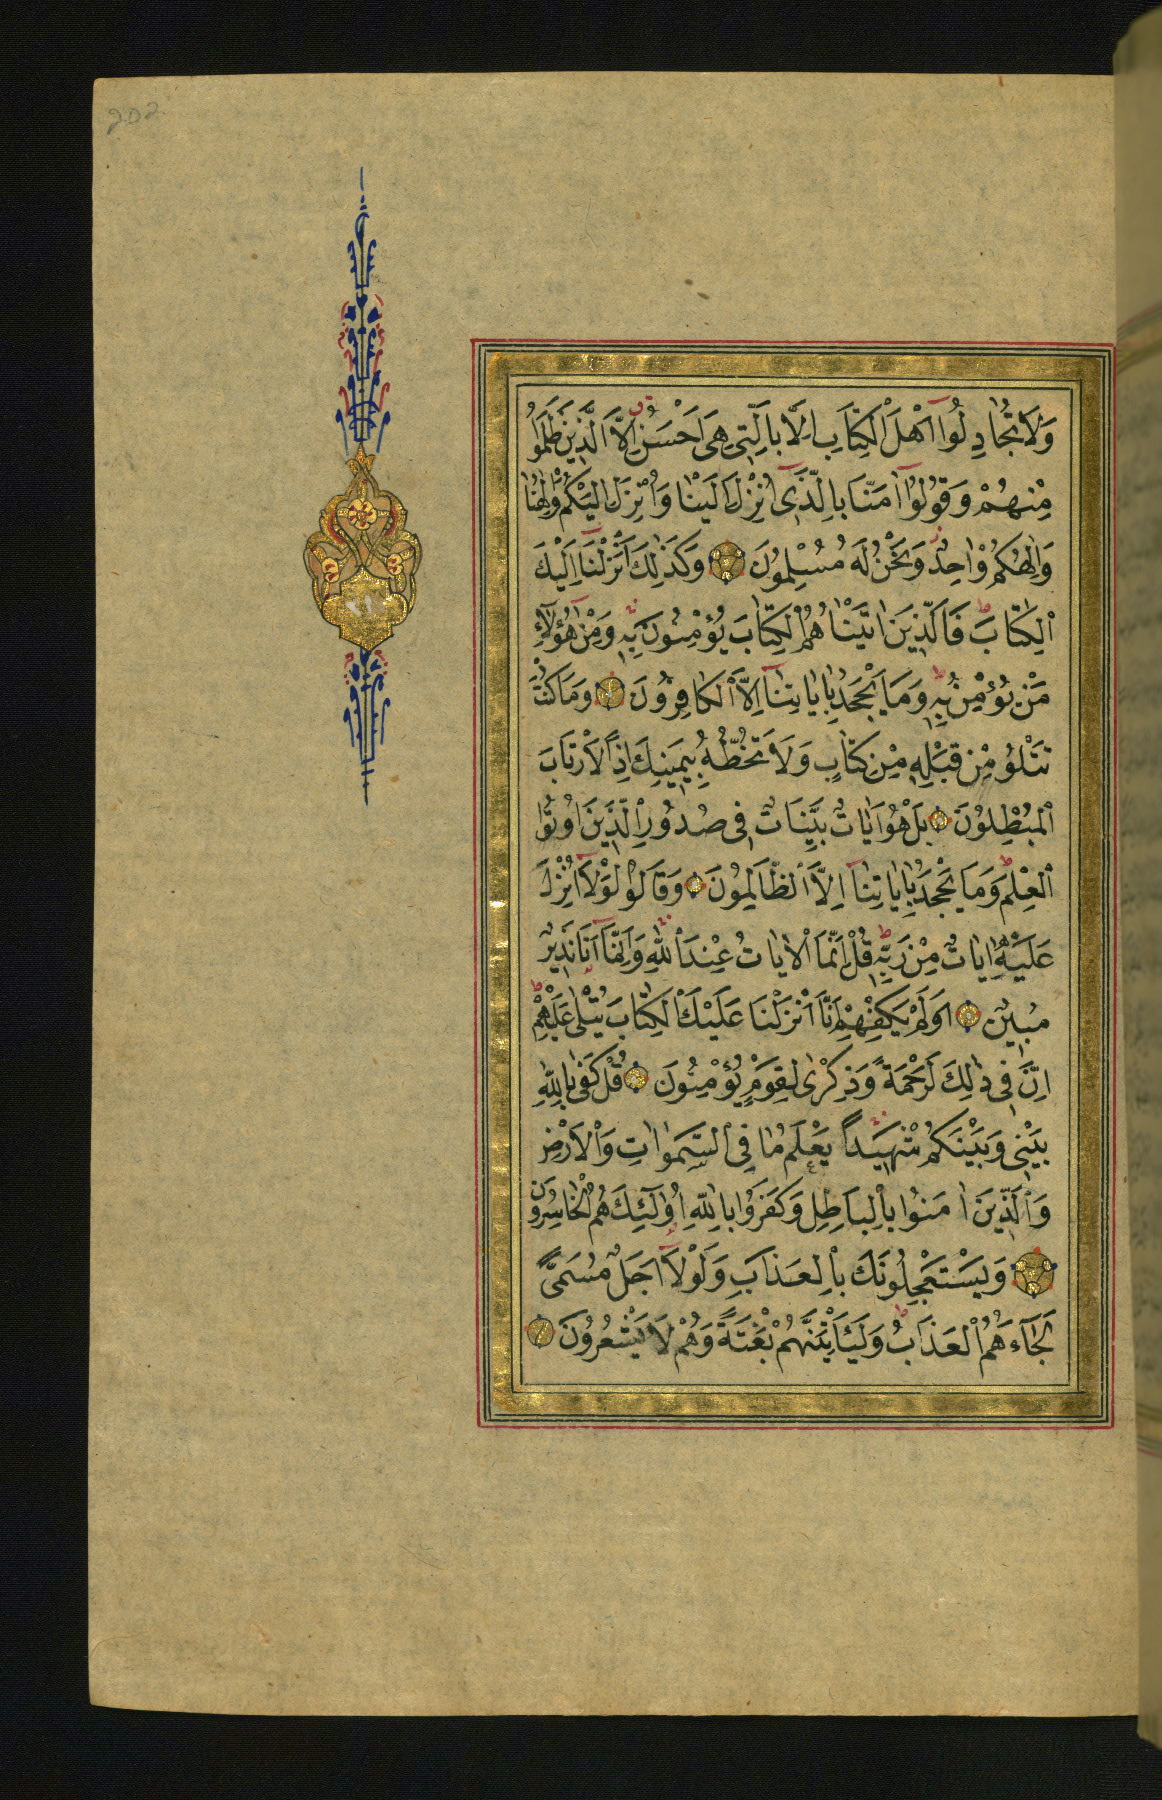 202
وَلَا تُجَادِلُوا اَهْلَ الْكِتَابِ اِلَّا بِالَّتِي هِيَ اَحْسَنُ اِلَّا الَّذِينَ ظَلَمُوا
مِنْهُمْ وَقُولُوا اٰمَنَّا بِالَّذِي اُنْزِلَ اِلَيْنَا وَاُنْزِلَ اِلَيْكُمْ وَاِلٰهُنَا
وَاِلٰهُكُمْ وَاحِدٌ وَنَحْنُ لَهُ مُسْلِمُونَ وَكَذٰلِكَ اَنْزَلْنَا اِلَيْكَ
الْكِتَابَ فَالَّذِينَ اٰتَيْنَاهُمُ الْكِتَابَ يُؤْمِنُونَ بِهِ وَمِنْ هٰؤُلَاءِ
مَنْ يُؤْمِنُ بِهِ وَمَا يَجْحَدُ بِاٰيَاتِنَا اِلَّا الْكَافِرُونَ وَمَا كُنْتَ
تَتْلُو مِنْ قَبْلِهِ مِنْ كِتَابٍ وَلَا تَخُطُّهُ بِيَمِينِكَ اِذًا لَارْتَابَ
الْمُبْطِلُونَ بَلْ هُوَ اٰيَاتٌ بَيِّنَاتٌ فِي صُدُورِ الَّذِينَ اُوتُوا
الْعِلْمَ وَمَا يَجْحَدُ بِاٰيَاتِنَا اِلَّا الظَّالِمُونَ وَقَالُوا لَوْلَا اُنْزِلَ
عَلَيْهِ اٰيَاتٌ مِنْ رَبِّهِ قُلْ اِنَّمَا الْاٰيَاتُ عِنْدَ اللهِ وَاِنَّمَا اَنَا نَذِيرٌ
مُبِينٌ اَوَلَمْ يَكْفِهِمْ اَنَّا اَنْزَلْنَا عَلَيْكَ الْكِتَابَ يُتْلٰى عَلَيْهِمْ
اِنَّ فِي ذٰلِكَ لَرَحْمَةً وَذِكْرٰى لِقَوْمٍ يُؤْمِنُونَ قُلْ كَفٰى بِاللهِ
بَيْنِي وَبَيْنَكُمْ شَهِيدًا يَعْلَمُ مَا فِي السَّمٰوَاتِ وَالْاَرْضِ
وَالَّذِينَ اٰمَنُوا بِالْبَاطِلِ وَكَفَرُوا بِاللهِ اُولٰئِكَ هُمُ الْخَاسِرُونَ
وَيَسْتَعْجِلُونَكَ بِالْعَذَابِ وَلَوْلَا اَجَلٌ مُسَمًّى
لَجَاءَهُمُ الْعَذَابُ وَلَيَأْتِيَنَّهُمْ بَغْتَةً وَهُمْ لَا يَشْعُرُونَ